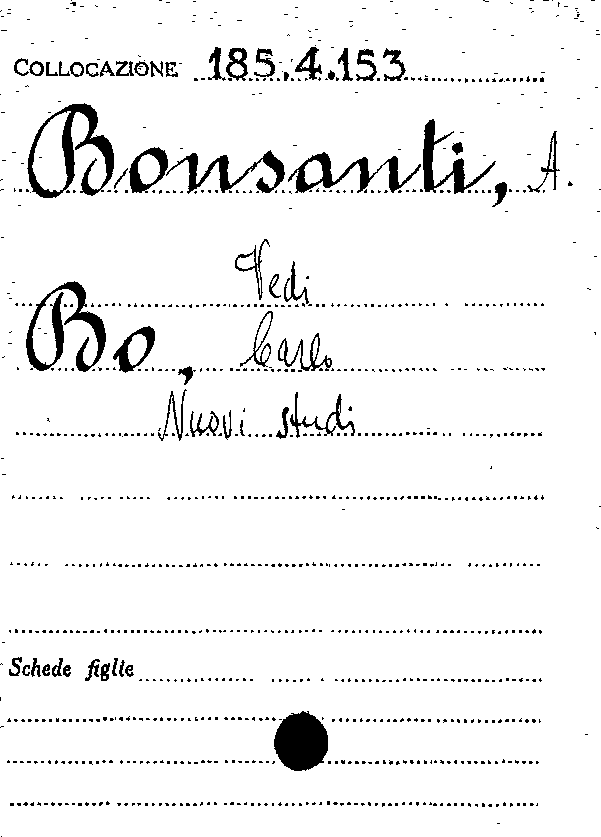 COLLOCAZIONE 185.4.153
Bonsanti, A.
Vedi
Bo, Carlo
Nuovi studi
Schede figlie